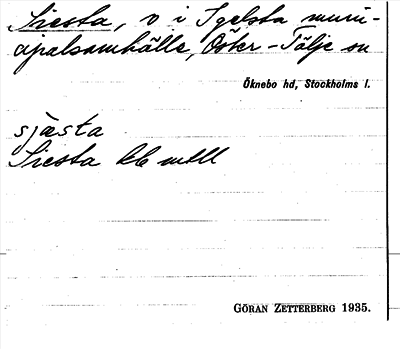 Siesta, v i Igelsta muni-
cipalsamhälle, Öster-Tälje sn
Öknebo hd, Stockholms l.
sjästa
Siesta
GÖRAN ZETTERBERG 1935.